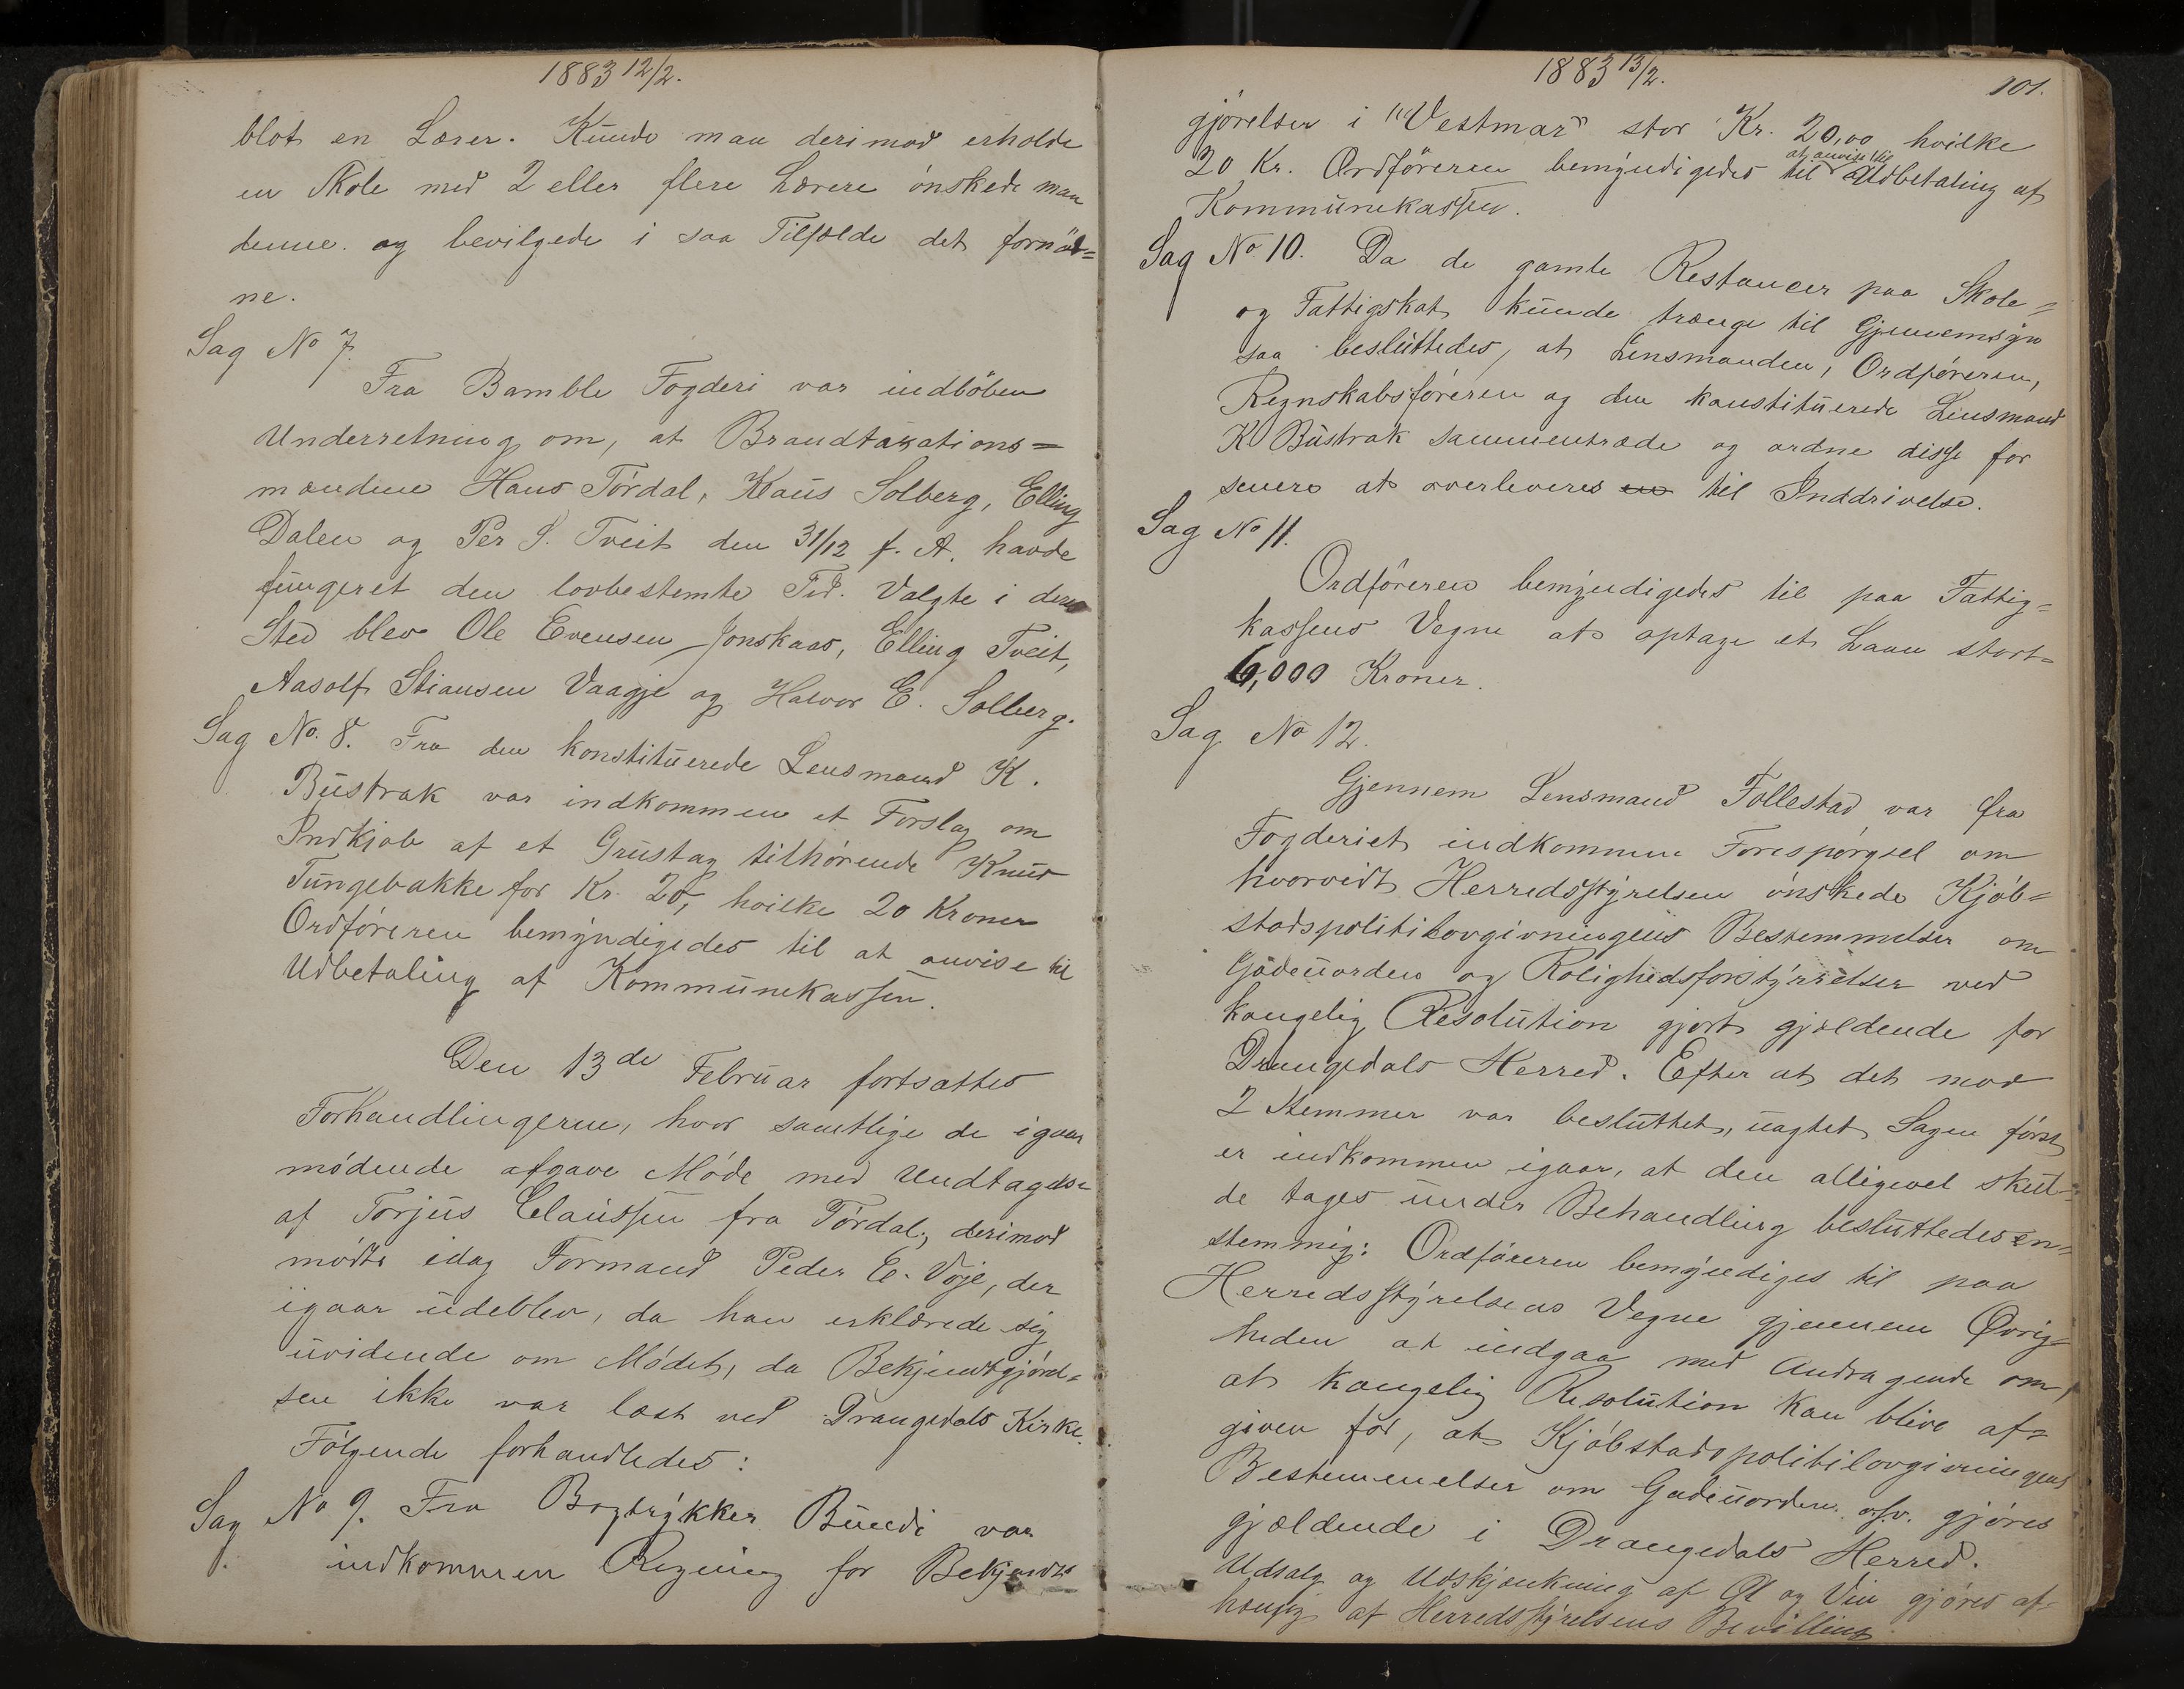 1883 12/2.
blot en Lærer. Kunde man derimod erholde
en Skole med 2 eller flere Lærere ønskede man
denne og bevilgede i saa Tilfælde det fornød=
ne.
Sag No 7.
Fra Bamble Fogderi var indløben
Underretning om, at Brandtaxations=
mændene Hans Tørdal, Klaus Solberg, Elling
Dalen og Per S. Tveit den 31/12 f. A. havde
fungeret den lovbestemte Tid. Valgte i deres
Sted blev Ole Evensen Jonskaas, Elling Tveit,
Aasolf Stiansen Vaagje og Halvor E. Solberg.
Sag No. 8. Fra den konstituerede Lensmand K.
Bustrak var indkommen et Forslag om
Indkjøb af et Grustag tilhørende Knud
Tungebakke for Kr. 20, hvilke 20 Kroner
Ordføreren bemyndigedes til at anvise til
Udbetaling af Kommunekassen.
Den 13de Februar fortsattes
Forhandlingerne, hvor samtlige de igaar
mødende afgave Møde med Undtagelse
af Torjus Claussen fra Tørdal, derimod
mødte idag Formand Peder E. Voje, der
igaar udeblev, da han erklærede sig
uvidende om Mødet, da Bekjendtgjørel=
sen ikke var læst ved Drangedals Kirke.
Følgende forhandledes:
Sag No 9. Fra Bogtrykker Bundi var
indkommen Regning for Bekjendt
1883 13/2.
101.
gjørelser i "Vestmar" stor Kr. 20,00 hvilke
at anvise til
20 Kr. Ordføreren bemyndigedes til Udbetaling af
Kommunekassen.
Sag No 10. Da de gamle Restancer paa Skole=
og Fattigskat kunde trænge til Gjennemsyn
saa besluttedes, at Lensmanden, Ordføreren,
Regnskabsføreren og den konstituerede Lensmand
K Bustrak sammentræde og ordne disse for
senere at overleveres en til Inddrivelse.
Sag No 11.
Ordføreren bemyndigedes til paa Fattig=
kassens Vegne at optage et Laan stort
6,000 Kroner.
Sag No 12.
Gjennem Lensmand Follestad var fra
Fogderiet indkommen Forespørgsel om
hvorvidt Herredsstyrelsen ønskede Kjøb=
stadspolitilovgivningens Bestemmelser om
Gadeuorden og Rolighedsforstyrrelser ved
kongelig Resolution gjort gjældende for
Drangedals Herred. Efter at det mod
2 Stemmer var besluttet, uagtet Sagen først
er indkommen igaar, at den alligevel skul=
de tages under Behandling besluttedes en=
stemmig: Ordføreren bemyndiges til paa
Herredsstyrelsens Vegne gjennem Øvrig=
heden at indgaa med Andragende om,
at kongelig Resolution kan blive af=
given for, at Kjøbstadspolitilovgivningens
Bestemmelser om Gadeuorden o.s.v. gjøres
gjældende i Drangedals Herred.
Udsalg og Udskjænkning af Øl og Vin gjøres af=
hængig af Herredsstyrelsens Bevilling